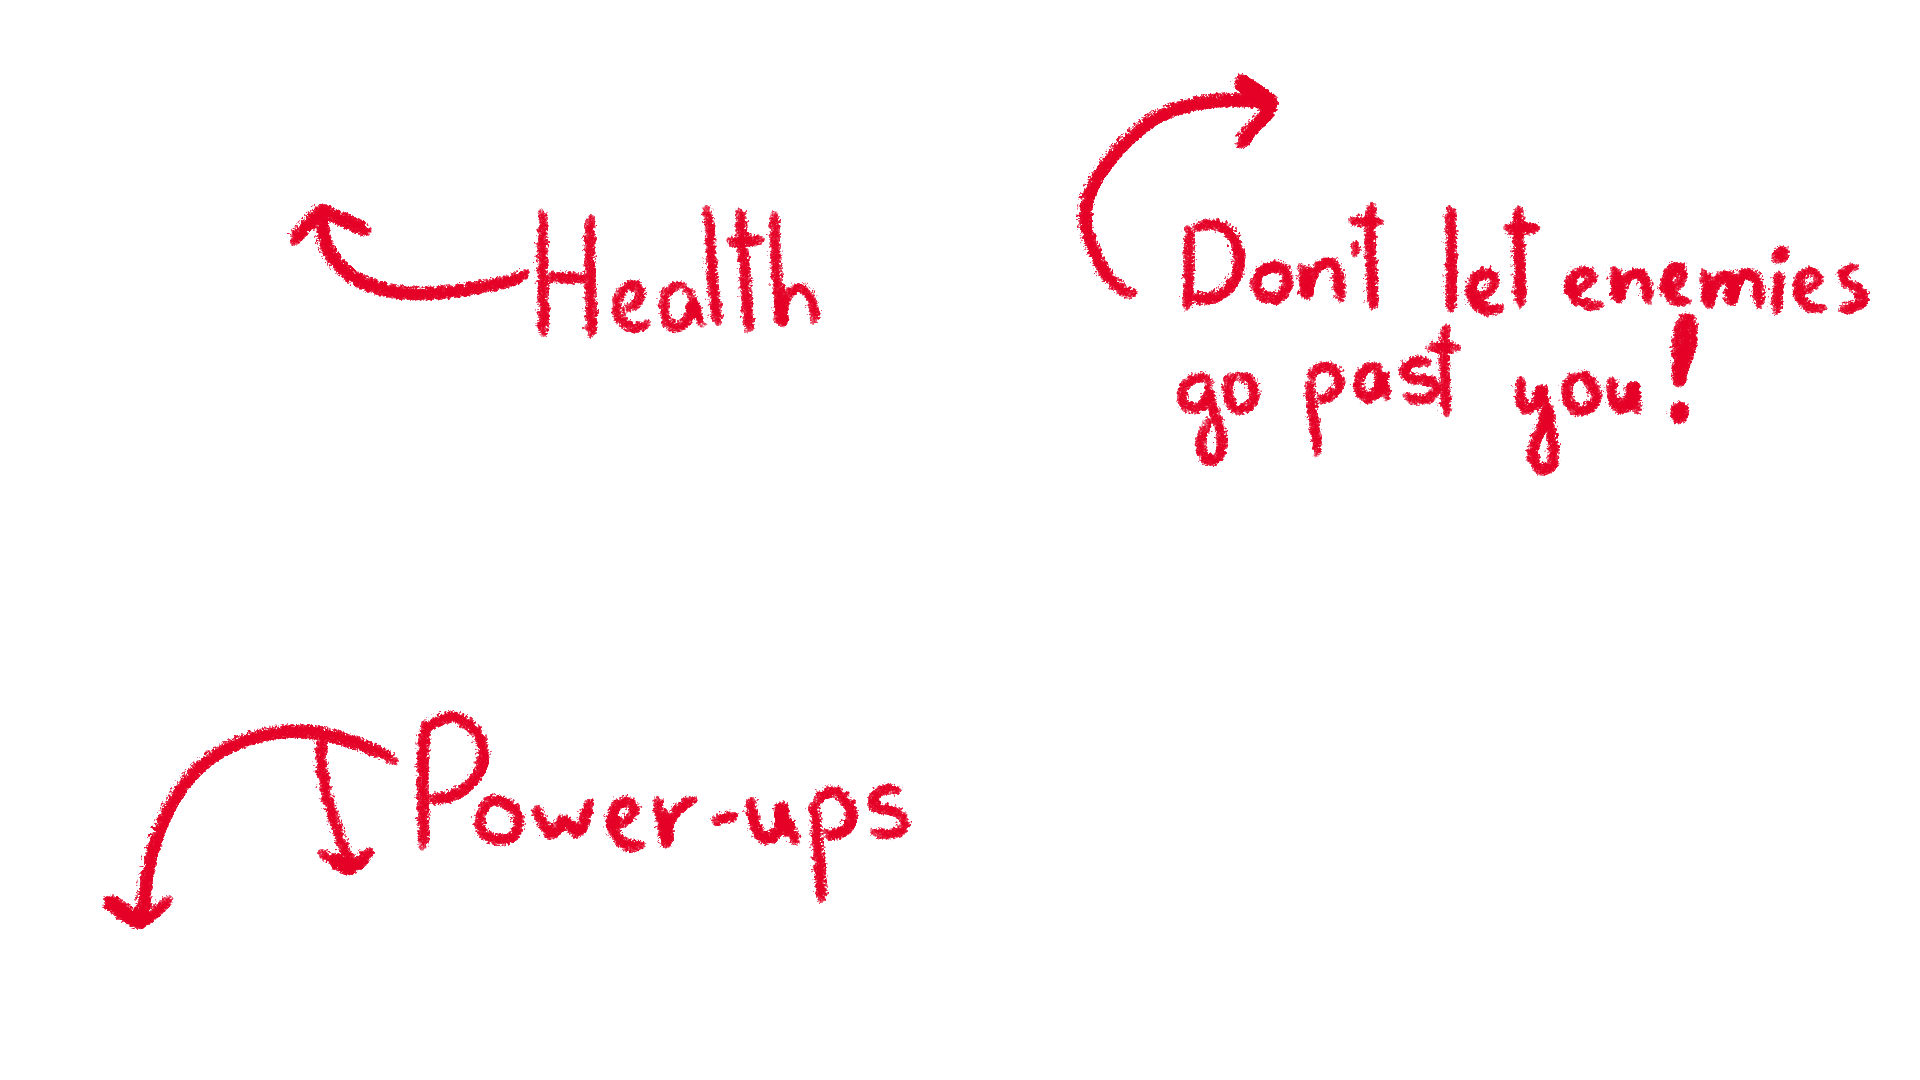 Health
Don't let enemies
go past you!
Power-ups